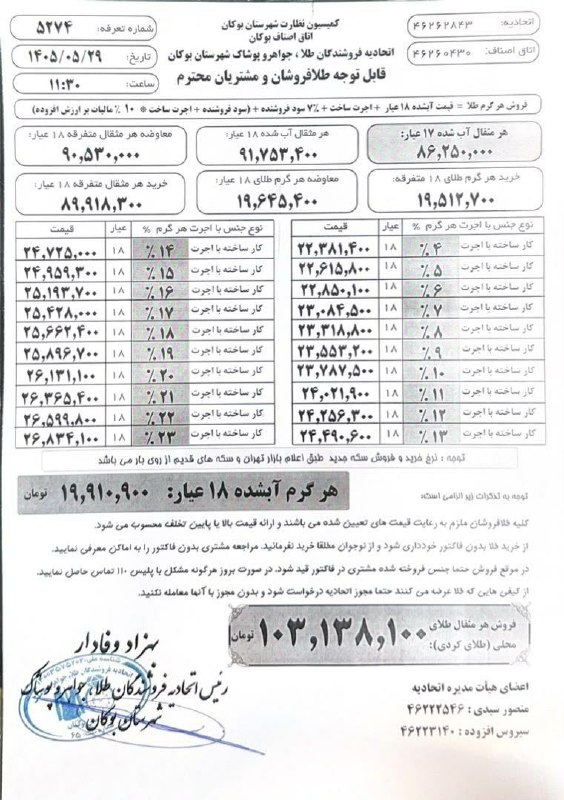 کمیسیون نظارت شهرستان بوکان
اتاق اصناف بوکان
اتحادیه فروشندگان طلا، جواهر و پوشاک شهرستان بوکان
قابل توجه طلافروشان و مشتریان محترم
اتحادیه: ۴۶۲۶۲۸۴۳
اتاق اصناف: ۴۶۲۶۰۴۳۰
شماره تعرفه: ۵۲۷۴
تاریخ: ۱۴۰۵/۰۵/۲۹
ساعت: ۱۱:۳۰
فروش هر گرم طلا = قیمت آبشده ۱۸ عیار + اجرت ساخت + ۷٪ سود فروشنده + (سود فروشنده + اجرت ساخت * ۱۰٪ مالیات بر ارزش افزوده)
هر مثقال آب شده ۱۷ عیار: ۸۶,۲۵۰,۰۰۰
هر مثقال آب شده ۱۸ عیار: ۹۱,۷۵۳,۴۰۰
معاوضه هر مثقال متفرقه ۱۸ عیار: ۹۰,۵۳۰,۰۰۰
خرید هر گرم طلای ۱۸ متفرقه: ۱۹,۵۱۲,۷۰۰
معاوضه هر گرم طلای ۱۸ عیار: ۱۹,۶۴۵,۴۰۰
خرید هر مثقال متفرقه ۱۸ عیار: ۸۹,۹۱۸,۳۰۰
نوع جنس با اجرت هر گرم % عیار قیمت
کار ساخته با اجرت ۴٪ ۱۸ ۲۲,۳۸۱,۴۰۰
کار ساخته با اجرت ۵٪ ۱۸ ۲۲,۶۱۵,۸۰۰
کار ساخته با اجرت ۶٪ ۱۸ ۲۲,۸۵۰,۱۰۰
کار ساخته با اجرت ۷٪ ۱۸ ۲۳,۰۸۴,۵۰۰
کار ساخته با اجرت ۸٪ ۱۸ ۲۳,۳۱۸,۸۰۰
کار ساخته با اجرت ۹٪ ۱۸ ۲۳,۵۵۳,۲۰۰
کار ساخته با اجرت ۱۰٪ ۱۸ ۲۳,۷۸۷,۵۰۰
کار ساخته با اجرت ۱۱٪ ۱۸ ۲۴,۰۲۱,۹۰۰
کار ساخته با اجرت ۱۲٪ ۱۸ ۲۴,۲۵۶,۳۰۰
کار ساخته با اجرت ۱۳٪ ۱۸ ۲۴,۴۹۰,۶۰۰
نوع جنس با اجرت هر گرم % عیار قیمت
کار ساخته با اجرت ۱۴٪ ۱۸ ۲۴,۷۲۵,۰۰۰
کار ساخته با اجرت ۱۵٪ ۱۸ ۲۴,۹۵۹,۳۰۰
کار ساخته با اجرت ۱۶٪ ۱۸ ۲۵,۱۹۳,۷۰۰
کار ساخته با اجرت ۱۷٪ ۱۸ ۲۵,۴۲۸,۰۰۰
کار ساخته با اجرت ۱۸٪ ۱۸ ۲۵,۶۶۲,۴۰۰
کار ساخته با اجرت ۱۹٪ ۱۸ ۲۵,۸۹۶,۷۰۰
کار ساخته با اجرت ۲۰٪ ۱۸ ۲۶,۱۳۱,۱۰۰
کار ساخته با اجرت ۲۱٪ ۱۸ ۲۶,۳۶۵,۴۰۰
کار ساخته با اجرت ۲۲٪ ۱۸ ۲۶,۵۹۹,۸۰۰
کار ساخته با اجرت ۲۳٪ ۱۸ ۲۶,۸۳۴,۱۰۰
توجه : نرخ خرید و فروش سکه جدید طبق اعلام بازار تهران و سکه های قدیم از روی بار می باشد
هر گرم آبشده ۱۸ عیار: ۱۹,۹۱۰,۹۰۰ تومان
توجه به تذکرات زیر الزامی است:
کلیه طلافروشان ملزم به رعایت قیمت های تعیین شده می باشند و ارائه قیمت بالا یا پایین تخلف محسوب می شود.
از خرید طلا بدون فاکتور خودداری شود و از نوجوان مطلقا خرید نفرمائید. مراجعه مشتری بدون فاکتور را به اماکن معرفی نمایید.
در موقع فروش حتما جنس فروخته شده مشتری در فاکتور قید شود. در صورت بروز هرگونه مشکل با پلیس ۱۱۰ تماس حاصل نمایید.
از کیفی هایی که طلا عرضه می کنند حتما مجوز اتحادیه درخواست شود و بدون مجوز با آنها معامله نکنید.
فروش هر مثقال طلای محلی (طلای کردی): ۱۰۳,۱۳۸,۱۰۰ تومان
اعضای هیأت مدیره اتحادیه
منصور سیدی : ۴۶۲۲۲۵۴۶
سیروس افزوده : ۴۶۲۲۳۱۴۰
بهزاد وفادار
رئیس اتحادیه فروشندگان طلا، جواهر و پوشاک
شهرستان بوکان